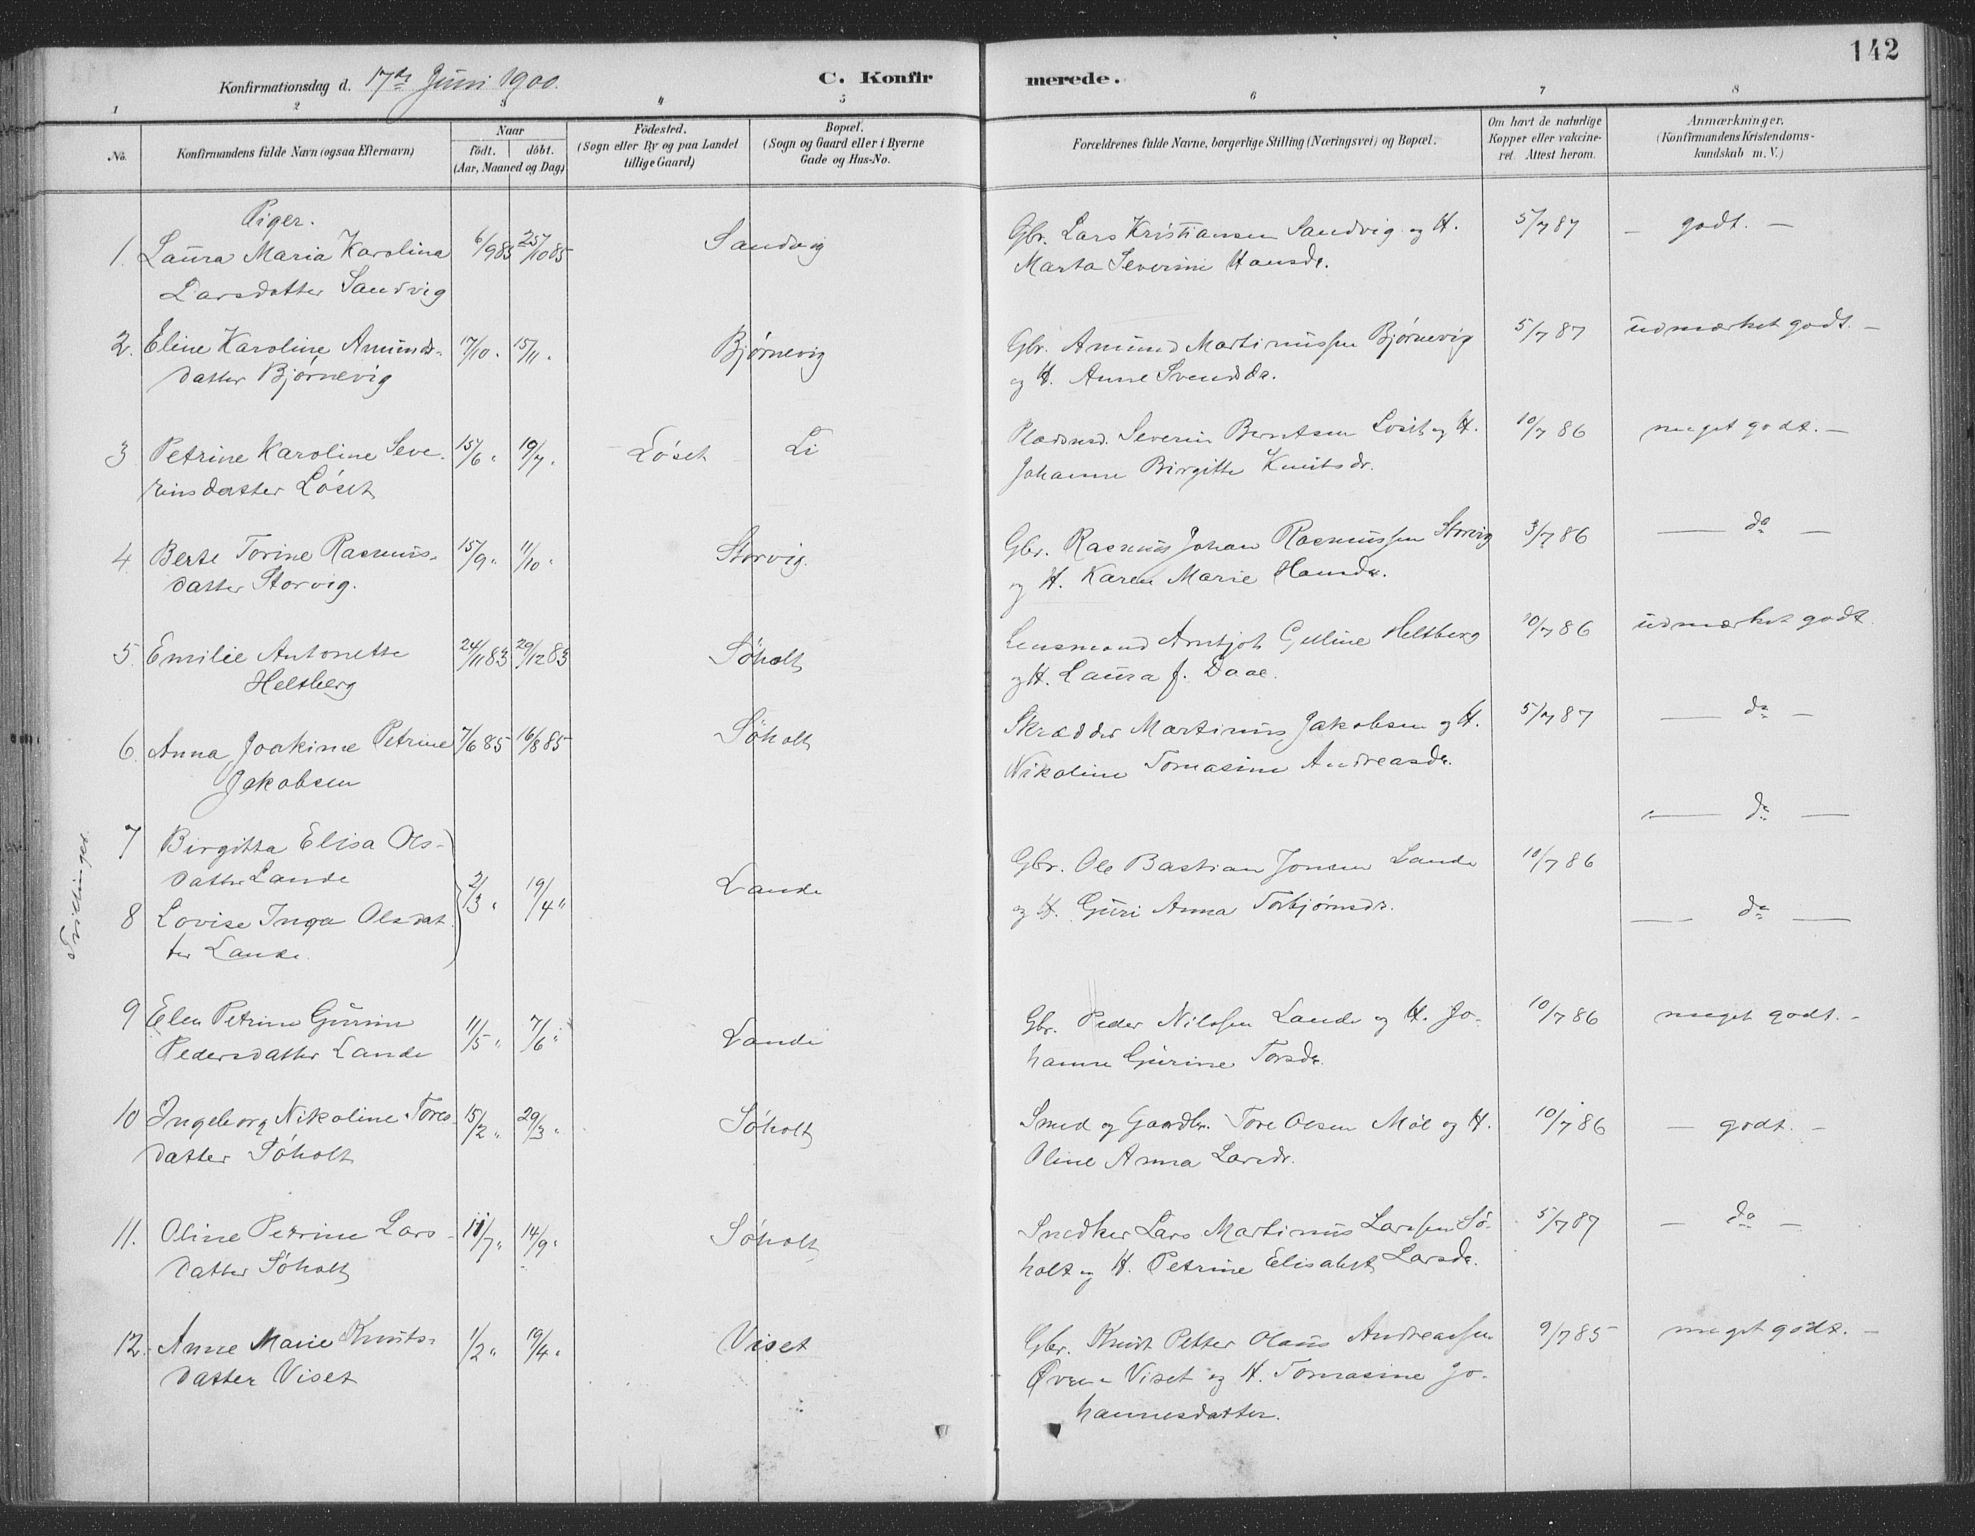 142
Konfirmationsdag d. 17de Juni 1900.
C. Konfirmerede.
1 2 3 4 5 6 7 8
No.
Konfirmandens fulde Navn (ogsaa Efternavn)
Naar
födt. döbt.
(Aar, Maaned og Dag)
Födested.
(Sogn eller By og paa Landet
tillige Gaard)
Bopæl.
(Sogn og Gaard eller i Byerne
Gade og Hus-No.
Forældrenes fulde Navne, borgerlige Stilling (Næringsvei) og Bopæl.
Om havt de naturlige
Kopper eller vakcine-
ret. Attest herom.
Anmærkninger.
(Konfirmandens Kristendoms-
kundskab m. V.)
Piger.
1. Laura Maria Karolina 6/9 85 25/10 85 Sandvig Gbr. Lars Kristiansen Sandvig og H. 5/7 87 – godt. –
Larsdatter Sandvig Marta Severine Hansdr.
2. Eline Karoline Amunds- 17/10 " 15/11 " Bjørnevig Gbr. Amund Martinussen Bjørnevig 5/7 87 udmærket godt. –
datter Bjørnevig og H. Anne Svendsdr.
3 Petrine Karoline Seve- 15/6 " 19/7 " Løset Li Pladsmd. Severin Berntsen Løset og H. 10/7 86 meget godt. –
rinsdatter Løset Johanne Birgitte Knutsdr.
4. Berte Torine Rasmus- 15/9 " 11/10 " Storvig. Gbr. Rasmus Johan Rasmussen Storvig 3/7 86 — do —
datter Storvig. og H. Karen Marie Hansdr.
5. Emilie Antonette 24/11 83 29/12 83 Søholt Lensmand Arntjot Heltberg 10/7 86 udmærket godt.
Heltberg og H. Laura f. Daae.
6. Anna Joakime Petrine 7/6 85 16/8 85 Søholt Skrædder Martinus Jakobsen og H. 5/7 87 — do —
Jakobsen Nikoline Tomasine Andreasdr.
Tvillinger.
7 Birgitta Elisa Ols- — do —
datter Lande 2/3 " 19/4 " Lande Gbr. Ole Bastian Jonsen Lande 10/7 86
8 Lovise Inga Olsdat- og H. Guri Anna Torbjørnsdr. — do —
ter Lande.
9 Elen Petrine Gurine 11/5 " 7/6 " Lande Gbr. Peder Nilssen Lande og H. Jo- 10/7 86 meget godt. –
Pedersdatter Lande hanne Gurine Torsdr.
10 Ingeborg Nikoline Tores- 15/2 " 29/3 " Søholt Smed og Gaardbr. Tore Olsen Møl og H. 10/7 86 – godt. –
datter Søholt Oline Anna Larsdr.
11. Oline Petrine Lars- 11/7 " 14/9 " Søholt Snedker Lars Martinus Larssen Sø- 5/7 87 – do –
datter Søholt holt og H. Petrine Elisabet Larsdr.
12. Anne Marie Knuts- 1/2 " 19/4 " Viset Gbr. Knut Petter Olaus Andreassen 9/7 85 meget godt. –
datter Viset Øvre- Viset og H. Tomasine Jo-
hannesdatter.